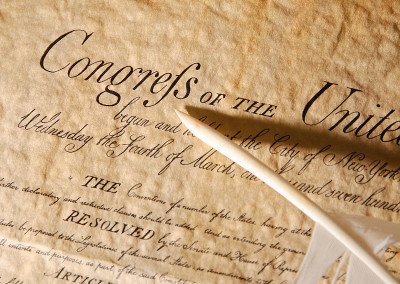 Congreſs OF THE United
begun and held at the City of New York
Wednesday the Fourth of March, one and seven hund
THE Conventions of a number of the States having at the
further declaratory and restrictive clauses should be added And as extending the ground
RESOLVED by the Senate and House of
be proposed to the Legislatures of the several States, as amendments
intents and purposes, as part of the said Constitution
ARTICL